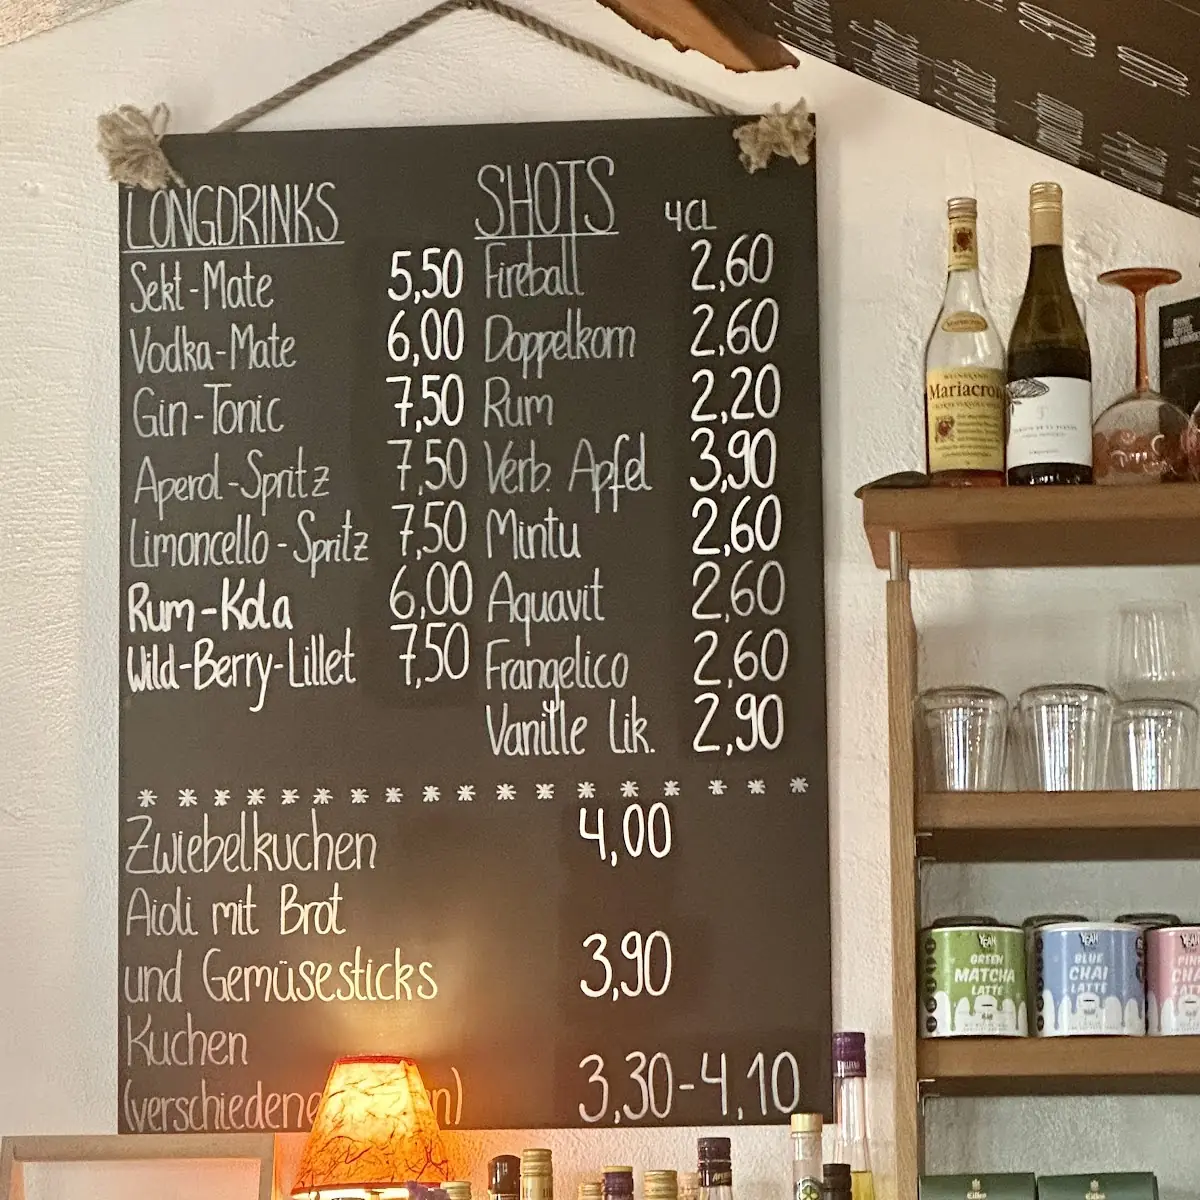 LONGDRINKS
Sekt-Mate 5,50
Vodka-Mate 6,00
Gin-Tonic 7,50
Aperol-Spritz 7,50
Limoncello-Spritz 7,50
Rum-Kola 6,00
Wild-Berry-Lillet 7,50
SHOTS 4CL
Fireball 2,60
Doppelkorn 2,60
Rum 2,20
Verb. Apfel 3,90
Mintu 2,60
Aquavit 2,60
Frangelico 2,60
Vanille Lik. 2,90
Zwiebelkuchen 4,00
Aioli mit Brot
und Gemüsesticks 3,90
Kuchen
(verschiedene 3,30-4,10
Mariacron
YEAH
GREEN
MATCHA
LATTE
YEAH
BLUE
CHAI
LATTE